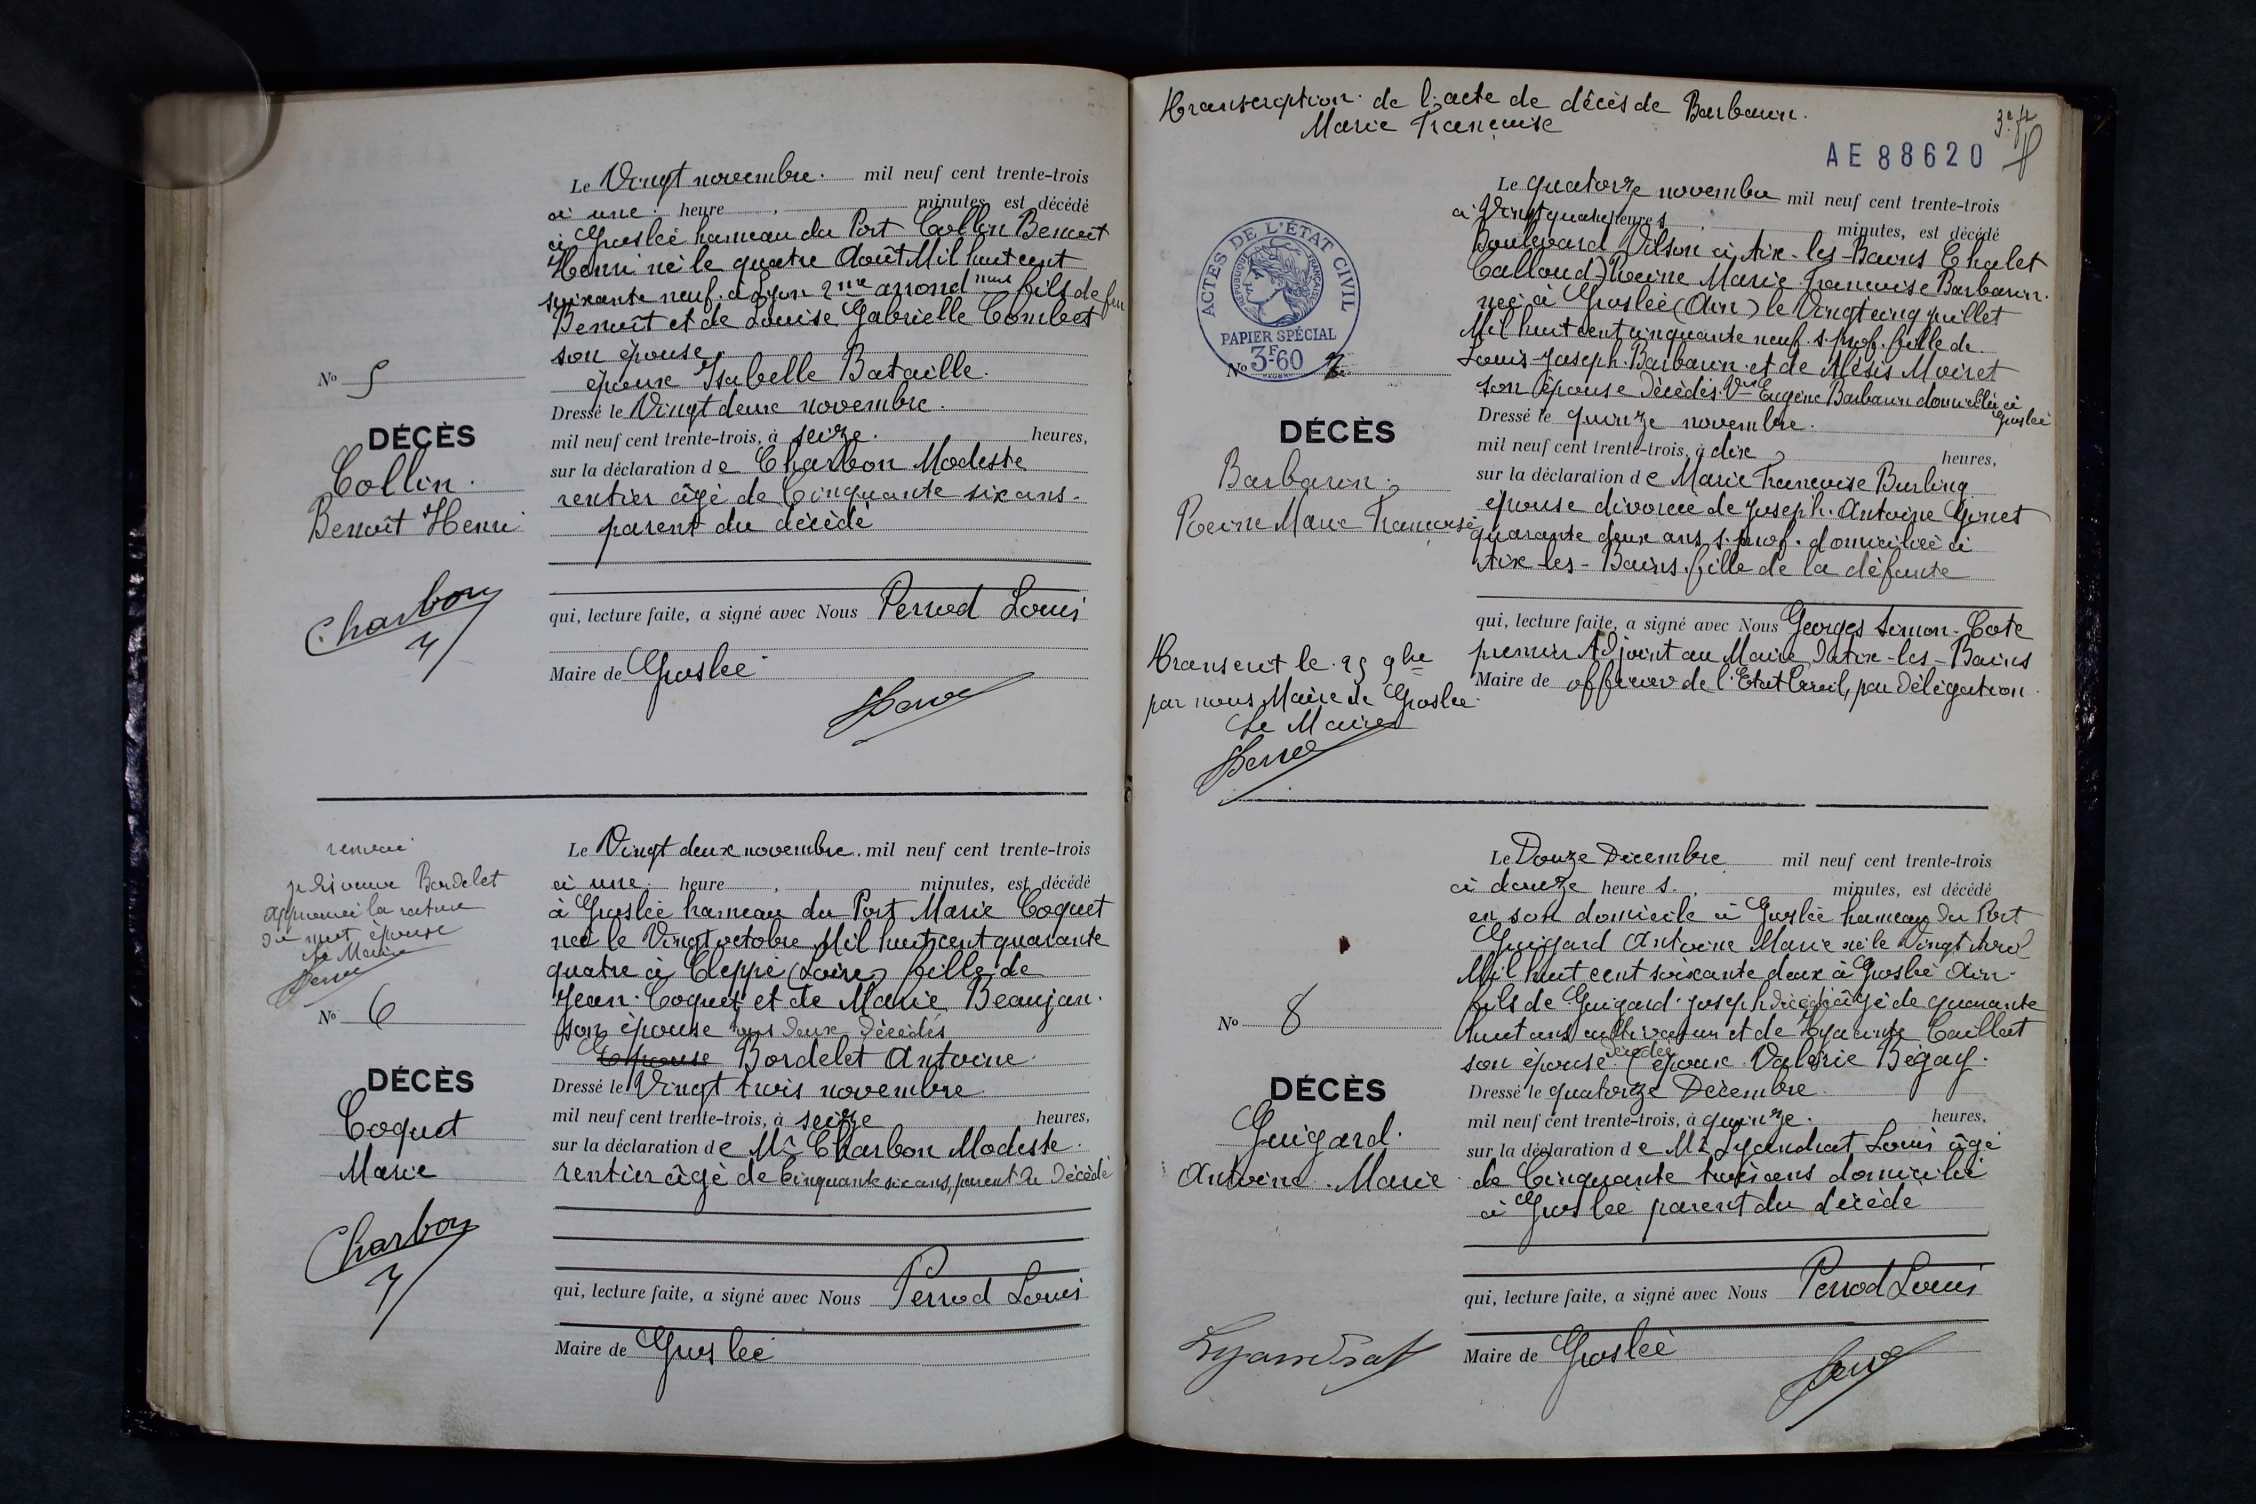 Le Vingt novembre. mil neuf cent trente-trois
à une. heure , minutes, est décédé
à Groslée hameau du Port Collin Benoît
Henri né le quatre Août Mil huit cent
soixante neuf. à Lyon 2me arrond ment fils de feu
Benoît et de Louise Gabrielle Combet
son épouse
époux Isabelle Bataille.
No 5
Dressé le Vingt deux novembre.
DÉCÈS
mil neuf cent trente-trois, à seize. heures,
Collin.
sur la déclaration de Charbon Modeste
Benoît Henri
rentier âgé de Cinquante six ans.
parent du décédé
Charbon
qui, lecture faite, a signé avec Nous Perrod Louis
Maire de Groslée
renvoi
veuve Bordelet
approuvé la rature
du mot épouse
Le Maire
Le Vingt deux novembre. mil neuf cent trente-trois
à une. heure , minutes, est décédé
à Groslée hameau du Port Marie Coquet
née le Vingt octobre Mil huit cent quarante
quatre à Cleppé (Loire) fille de
Jean. Coquet et de Marie Beaujan.
No 6
son épouse tous deux décédés
Epouse Bordelet Antoine.
DÉCÈS
Dressé le Vingt trois novembre
Coquet
mil neuf cent trente-trois, à seize heures,
Marie
sur la déclaration de Mr Charbon Modeste.
rentier âgé de Cinquante six ans, parent du Décédé
Charbon
qui, lecture faite, a signé avec Nous Perrod Louis
Maire de Groslée
Transcription. de l'acte de décès de Barbarin.
Marie Françoise
AE 88620
ACTES DE L'ÉTAT CIVIL
RÉPUBLIQUE FRANÇAISE
PAPIER SPÉCIAL
3F60
Le quatorze novembre mil neuf cent trente-trois
à Vingt quatre heures minutes, est décédé
Boulevard Vilson à Aix-les-Bains Chalet
Calloud) Reine Marie Francoise Barbarin.
née à Groslée (Ain) le Vingt cinq juillet
Mil huit cent cinquante neuf. s. prof. fille de.
Louis-Joseph. Barbarin. et de Moiret
No 7
son épouse décédés. Vve Eugène Barbarin domiciliée à
Groslée
Dressé le quinze novembre.
DÉCÈS
mil neuf cent trente-trois, à dix heures,
Barbarin.
sur la déclaration de Marie Francoise
Reine Marie Françoise
épouse divorcée de Joseph. Antoine Ginet
quarante deux ans s. prof. domiciliée à
Aix-les-Bains. fille de la défunte
qui, lecture faite, a signé avec Nous Georges Simon. Cote
premier Adjoint au Maire d'Aix-les-Bains
Maire de officier de l'Etat Civil, par délégation.
Transcrit le. 25 9bre
par nous Maire de Groslée.
Le Maire
Le Douze Décembre mil neuf cent trente-trois
à douze heures. minutes, est décédé
en son domicile à Groslée hameau du Port
Guigard Antoine Marie né le Vingt Avril
Mil huit cent soixante deux à Groslée Ain.
fils de Guigard. Joseph décédé âgé de quarante
No 8
huit ans cultivateur et de Hyacinte Caillat
son épouse décédée époux. Valérie Bégay.
DÉCÈS
Dressé le quatorze Décembre.
Guigard.
mil neuf cent trente-trois, à quinze. heures,
Antoine. Marie
sur la déclaration de Mr Lyandrat Louis âgé
de Cinquante trois ans domicilié
à Groslée parent du décédé
qui, lecture faite, a signé avec Nous Perrod Louis
Lyandrat
Maire de Groslée